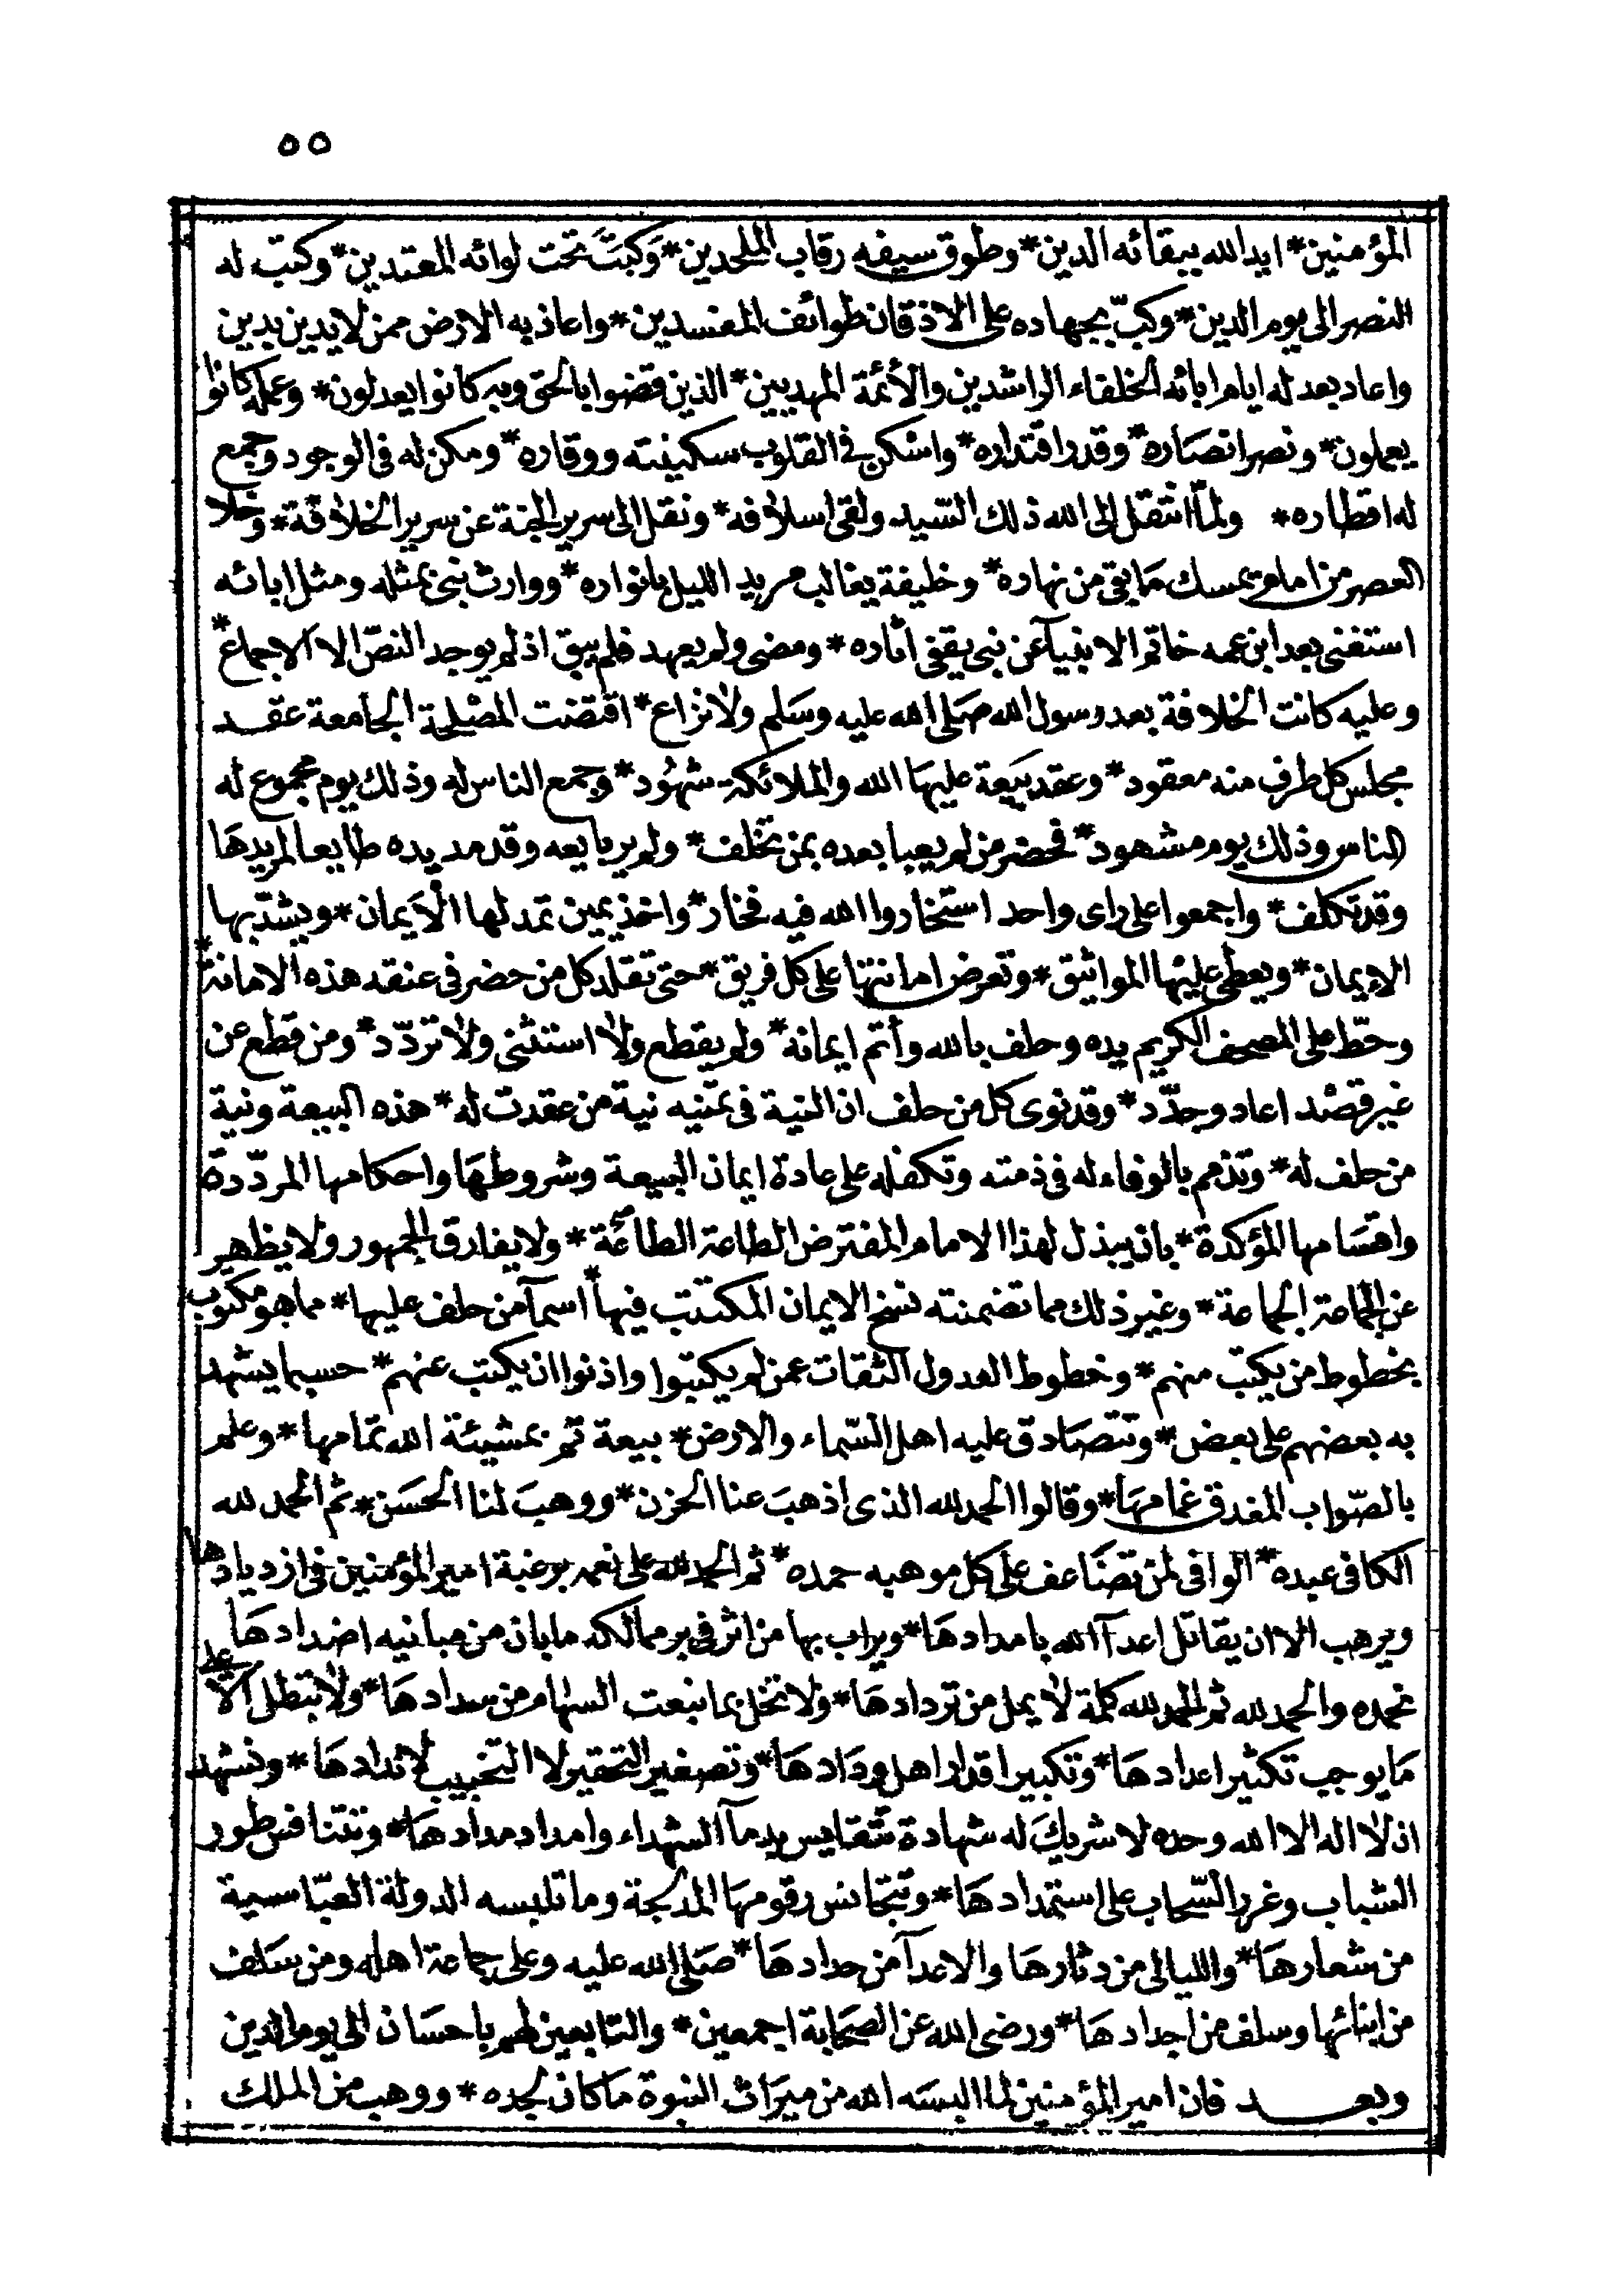 ٥٥
المؤمنين * ايد الله ببقائه الدين * وطوق سيفه رقاب الملحدين * وَكَبتَ تحت لوائه المعتدين * وكتب له
النصر الى يوم الدين * وكبّ بجهاده على الاذقان طوائف المفسدين * واعاذ به الارض ممن لا يدين بدين
واعاد بعد له ايام ابائه الخلفاء الراشدين والأئمة المهديين * الذين قضوا بالحق وبه كانوا يعدلون * وعمله كانوا
يعملون * ونصر انصاره * وقدر اقتداره * واسكن في القلوب سكينته ووقاره * ومكن له فى الوجود وجمع
له اقطاره * ولمّا انتقل إلى الله ذلك السّيد ولقى اسلافه * ونقل الى سرير الجنة عن سرير الخلافة * وخلا
العصر من امام يمسك مَا بقى من نهاره * وخليفة يغالب مريد الليل بانواره * ووارث بنى بمثله ومثل ابائه
استغنى بعد ابن عمه خاتم الانبيآ عن نبى يقفى اثاره * ومضى ولم يعهد فلم يبق اذ لم يوجد النصّ الا الاجماع *
وعليه كانت الخلافة بعد رسول الله صَلى الله عليه وسَلم ولا نزاع * اقتضت المصْلحة الجامعة عقد
مجلس كل طرف منه معقود * وعقد بَيعة عليهَا الله والملائكة شهُود * وجمع الناس له وذلك يوم مجموع له
الناس وذلك يوم مشهود * فحضر من لم يعبا بعده بمن تخلف * ولم ير بايعه وقد مد يده طايعا لمريدهَا
وقد تكلف * واجمعوا على راى واحد استخاروا الله فيه فخار * واخذ يمين تمد لها الأيمان * ويشدّ بها
الايمان * ويعطى عليْها المواثيق * وتعرض امانتها على كل فريق * حتى تقلد كل من حضر فى عنقه هذه الامانة *
وحطّ على المصحف الكريم يده وحلف بالله وأتم ايمانه * ولم يقطع ولا استثنى ولا تردّد * ومن قطع عن
غير قصْد اعاد وجدّد * وقد نوى كل من حلف ان النية فى يمينه نية من عقدت له * هذه البيعة ونية
من حلف له * وتذمم بالوفاء له فى ذمته وتكفله على عادة ايمان البيعة وشروطهَا واحكامها المردّدة
واقسَامها المؤكدة * بان يبذل لهذا الامام المفترض الطاعة الطآعة * ولا يفارق الجمهور ولا يظهر
عن الجماعة الجماعة * وغير ذلك مما تضمنته نسخ الايمان المكتتب فيها * اسمآ من حلف عليها * مما هو مكتوب
بخطوط من يكتب منهم * وخطوط العدول الثقات عمن لم يكتبوا واذنوا ان يكتب عنهم * حسبما يشهد
به بعضهم على بعض * وتتصَادق عليه اهل السّماء والارض * بيعة تم بمشيئة الله تمامها * وعلم
بالصّواب المغدق غمامهَا * وقالوا الحمد لله الذى اذهبَ عنا الحزن * ووهبَ لنا الحسَن * ثم الحمد لله
الكافى عبده * الوافى لمن تضَاعف على كل موهبه حمده * ثم الحمد لله على نعمه برغبة امير المؤمنين فى ازديادها
ويرهب الا ان يقاتل اعدآ الله بامدادهَا * ويراب بها من اثر فى بر ممالكه ما بان من مبانيه اضدادهَا
نحمده والحمد لله ثم الحمد لله كلمة لا يمل من تردادهَا * ولا تخل بما نبعت السهام من سدادهَا * ولا نتطل الا على
مَا يوجب تكثير اعدادهَا * وتكبير اقدار اهل ودَادهَا * وتصغير التحقير لا التحبيب لاندادهَا * ونشهد
ان لا اله الا الله وحده لا شريكَ له شهادة تتقايس بدمآ الشهداء وامداد مدادهَا * وتتنافس طور
الشباب وغرر السّحاب على استمدادهَا * وتتجانس رقومهَا المدبجة وما تلبسه الدولة العبّاسية
من شعارهَا * والليالى من دثارهَا والاعدآ من حدادهَا * صَلى الله عليه وعلى جماعة اهله ومن سَلف
من ابنائها وسلف من اجدادهَا * ورضى الله عن الصحَابة اجمعين * والتابعين لهم باحسَان الى يوم الدين
وبعــد فان امير المؤمنين لما البسَه الله من ميرَاث النبوة مَا كان لجده * ووهب من الملك